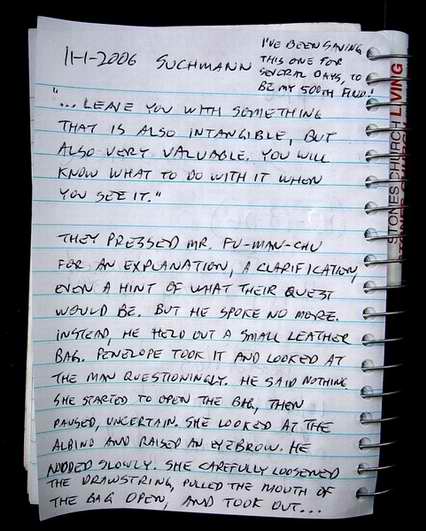 11-1-2006 SUCHMANN
I'VE BEEN SAVING
THIS ONE FOR
SEVERAL DAYS, TO
BE MY 500TH FIND!
"... LEAVE YOU WITH SOMETHING
THAT IS ALSO INTANGIBLE, BUT
ALSO VERY VALUABLE. YOU WILL
KNOW WHAT TO DO WITH IT WHEN
YOU SEE IT."
THEY PRESSED MR. FU-MAN-CHU
FOR AN EXPLANATION, A CLARIFICATION,
EVEN A HINT OF WHAT THEIR QUEST
WOULD BE. BUT HE SPOKE NO MORE.
INSTEAD, HE HELD OUT A SMALL LEATHER
BAG. PENELOPE TOOK IT AND LOOKED AT
THE MAN QUESTIONINGLY. HE SAID NOTHING.
SHE STARTED TO OPEN THE BAG, THEN
PAUSED, UNCERTAIN. SHE LOOKED AT THE
ALBINO AND RAISED AN EYEBROW. HE
NODDED SLOWLY. SHE CAREFULLY LOOSENED
THE DRAWSTRING, PULLED THE MOUTH OF
THE BAG OPEN, AND TOOK OUT...
STONESCHURCH LIVING